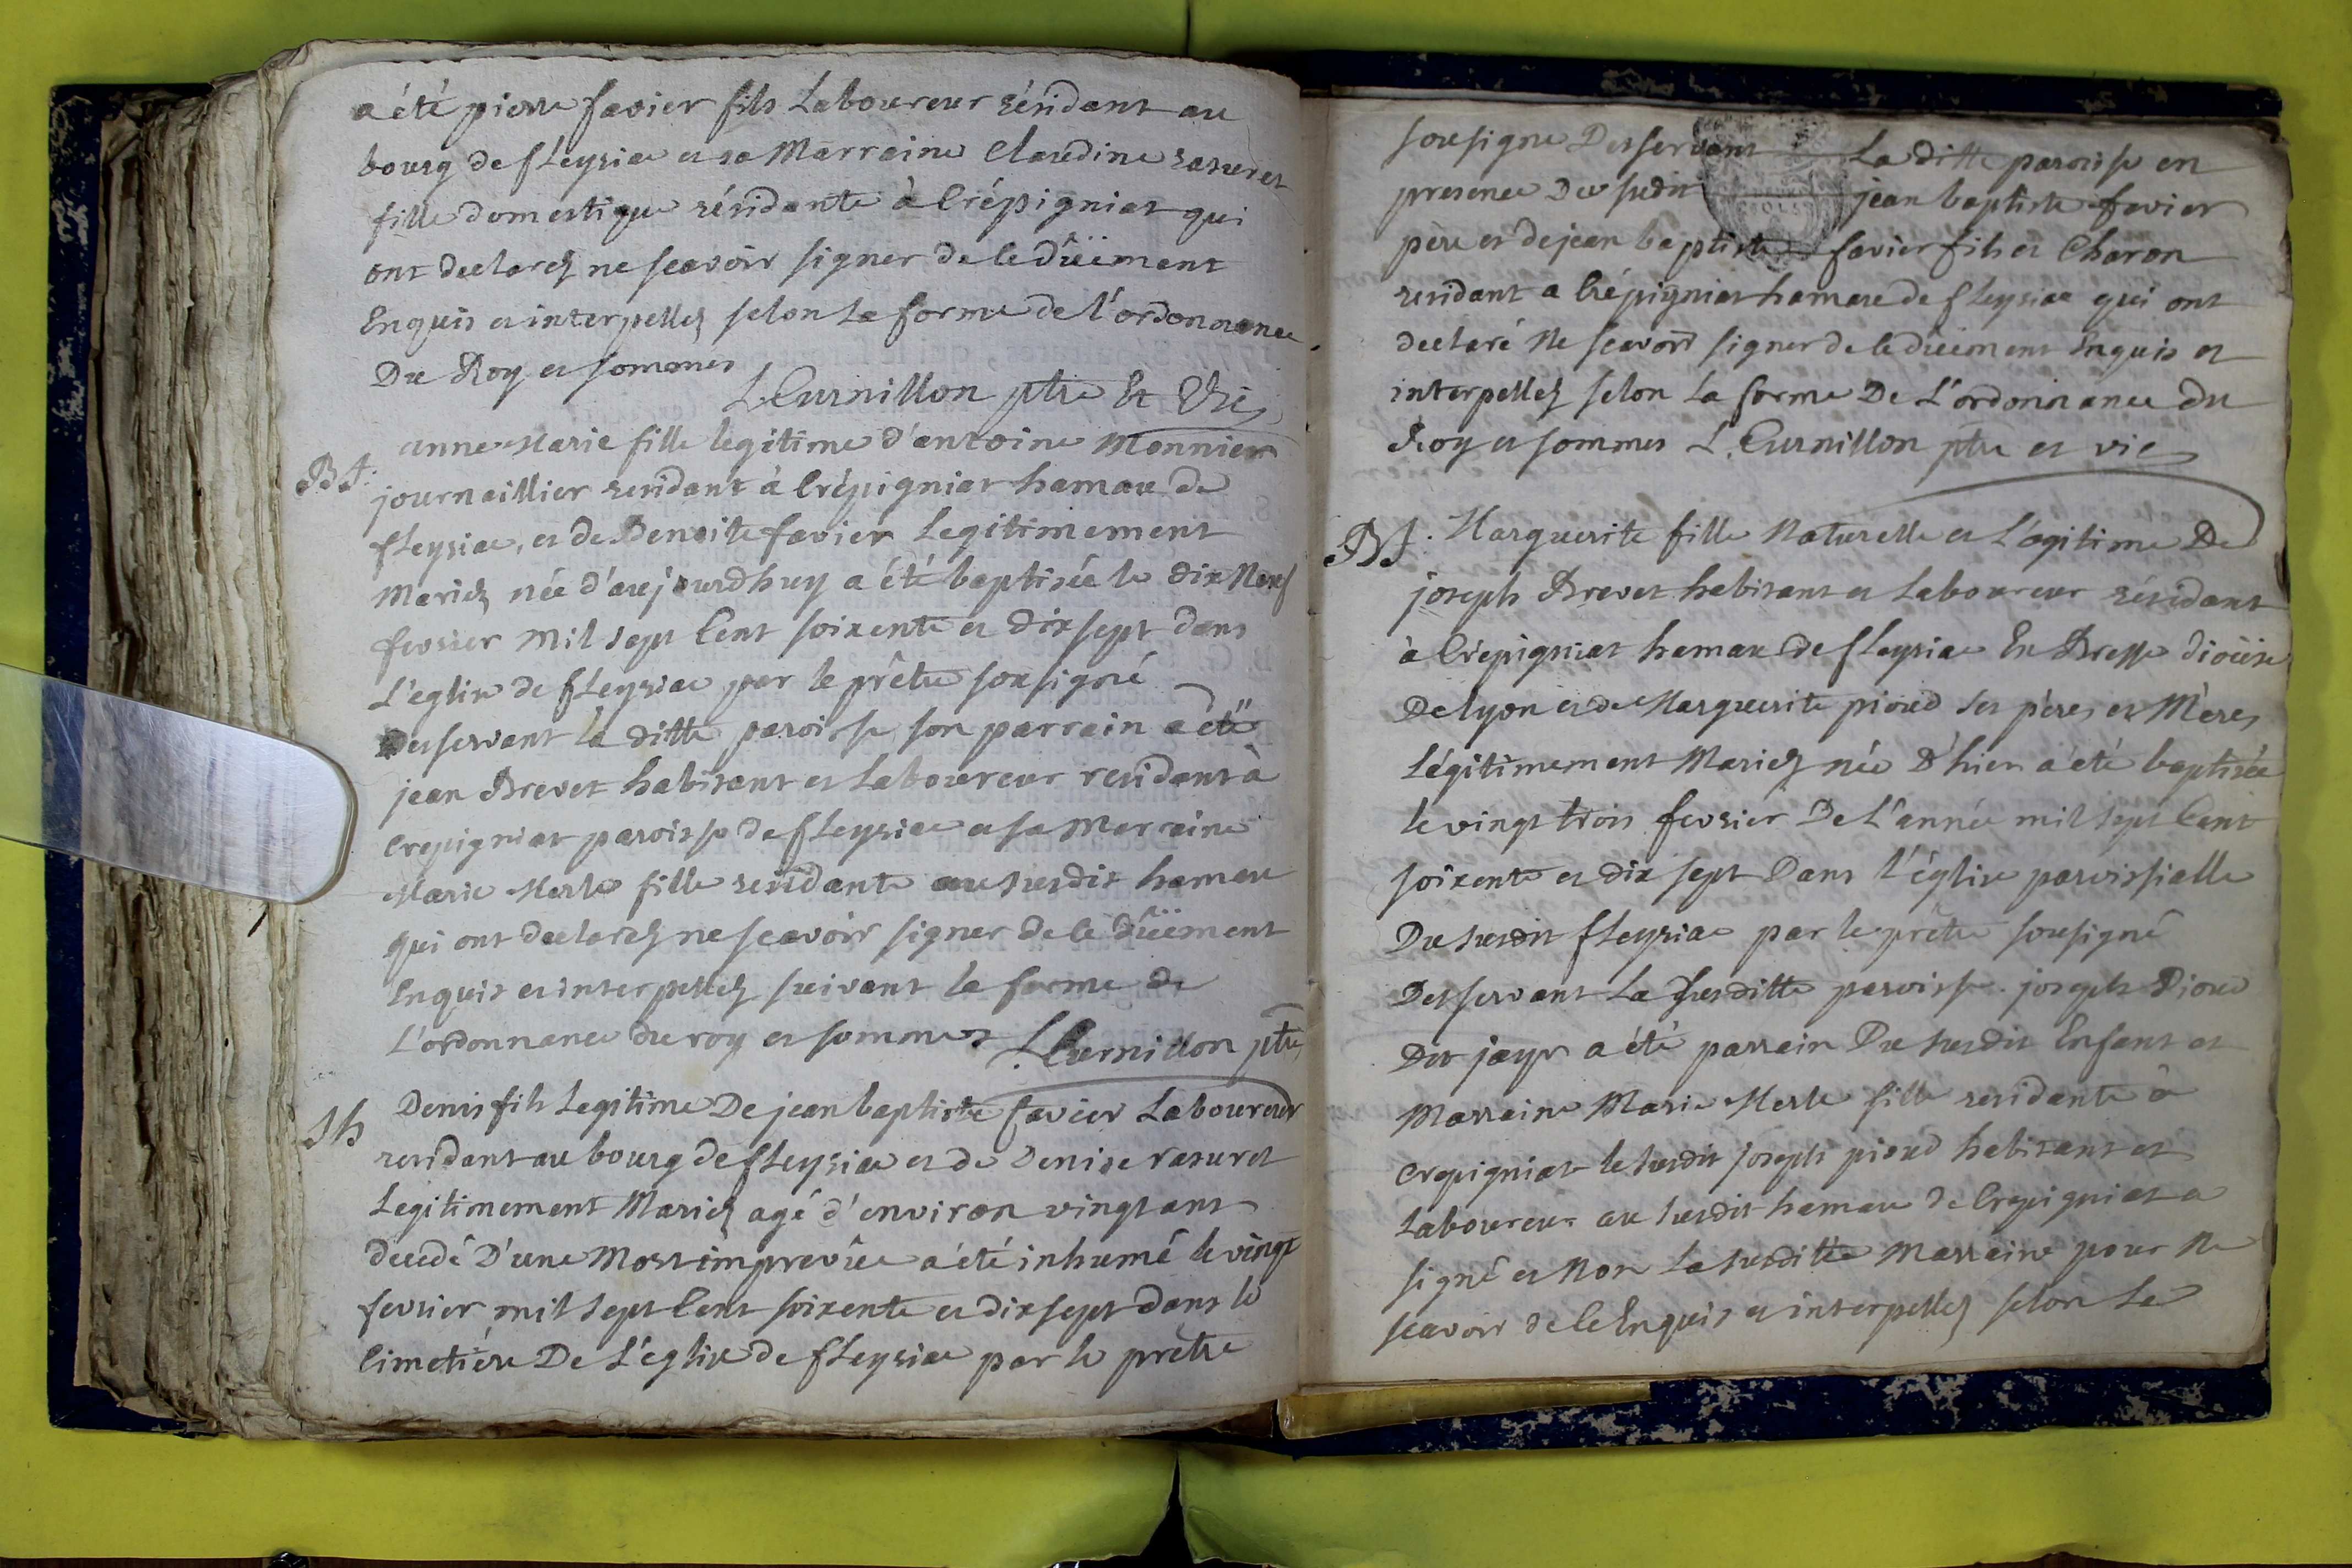 a été pierre favier fils Laboureur résidant au
bourg de fLeysiac et sa Marraine Claudine rasuret
fille domestique résidante à Crépigniat qui
ont declarez ne scavoir signer de ce Düëment
Enquis et interpellez selon La forme de l'ordonnance
Du Roy et sommes
L. Curnillon ptre Et Vic
anne Marie fille legitime d'antoine Monnier
Bt. journaillier residant à Crépigniat hamau de
fLeysiac, et de Benoite favier Legitimement
Mariez née d'aujourdhuy a été baptisée le dix Neuf
fevrier Mil sept Cent soixente et dix sept dans
L'eglise de fLeysiac par le prêtre sousigné
Desservant la ditte paroisse son parrain a été
jean Brevet habitant et Laboureur residant à
Crepigniat paroisse de fLeysiac et sa Marraine
Marie Merle fille residante au susdit hamau
qui ont declarez ne scavoir signer de ce Düëment
Enquis et interpellez suivant la forme de
L'ordonnance du roy et sommes. L. Curnillon ptre
Sh Denis fils Legitime De jean baptiste favier Laboureur
residant au bourg de fLeysiac et de Denise rasuret
Legitimement Mariez agé d'environ vingt ans
decedé D'une Mort imprevûe a été inhumé le vingt
fevrier mil sept Cent soixente et dix sept dans le
Cimetiére De L'eglise de fLeysiac par le prêtre
sousigne Desservant La ditte paroisse en
presence Du sudit jean baptiste favier
père et de jean baptiste favier fils et Charon
residant a Crépigniat hamau de fLeysiac qui ont
declaré Ne scavoir signer de ce düement Enquis et
interpellez selon La forme De L'ordonnance du
Roy et sommes L. Curnillon ptre et vic
Bt. Marguerite fille Naturelle et Légitime De
joseph Brevet habitant et Laboureur résidant
à Crépigniat hamau de fLeysiac En Bresse diocèse
De lyon et de Marguerite pioud ses pères et Mères
Légitimement Mariez née D'hier a été baptisée
le vingt trois fevrier De L'année mil sept Cent
soixente et dix sept Dans l'église paroissialle
Du susdit fLeysiac par le prêtre sousigné
Desservant La susditte paroisse. joseph Pioud
Dit jayr a été parrain Du susdit Enfant et
Marraine Marie Merle fille residante à
Crepigniat le susdit joseph pioud habitant et
Laboureur au susdit hamau de Crepigniat a
signé et Non La susditte Marraine pour Ne
scavoir de ce Enquis et interpellez selon La